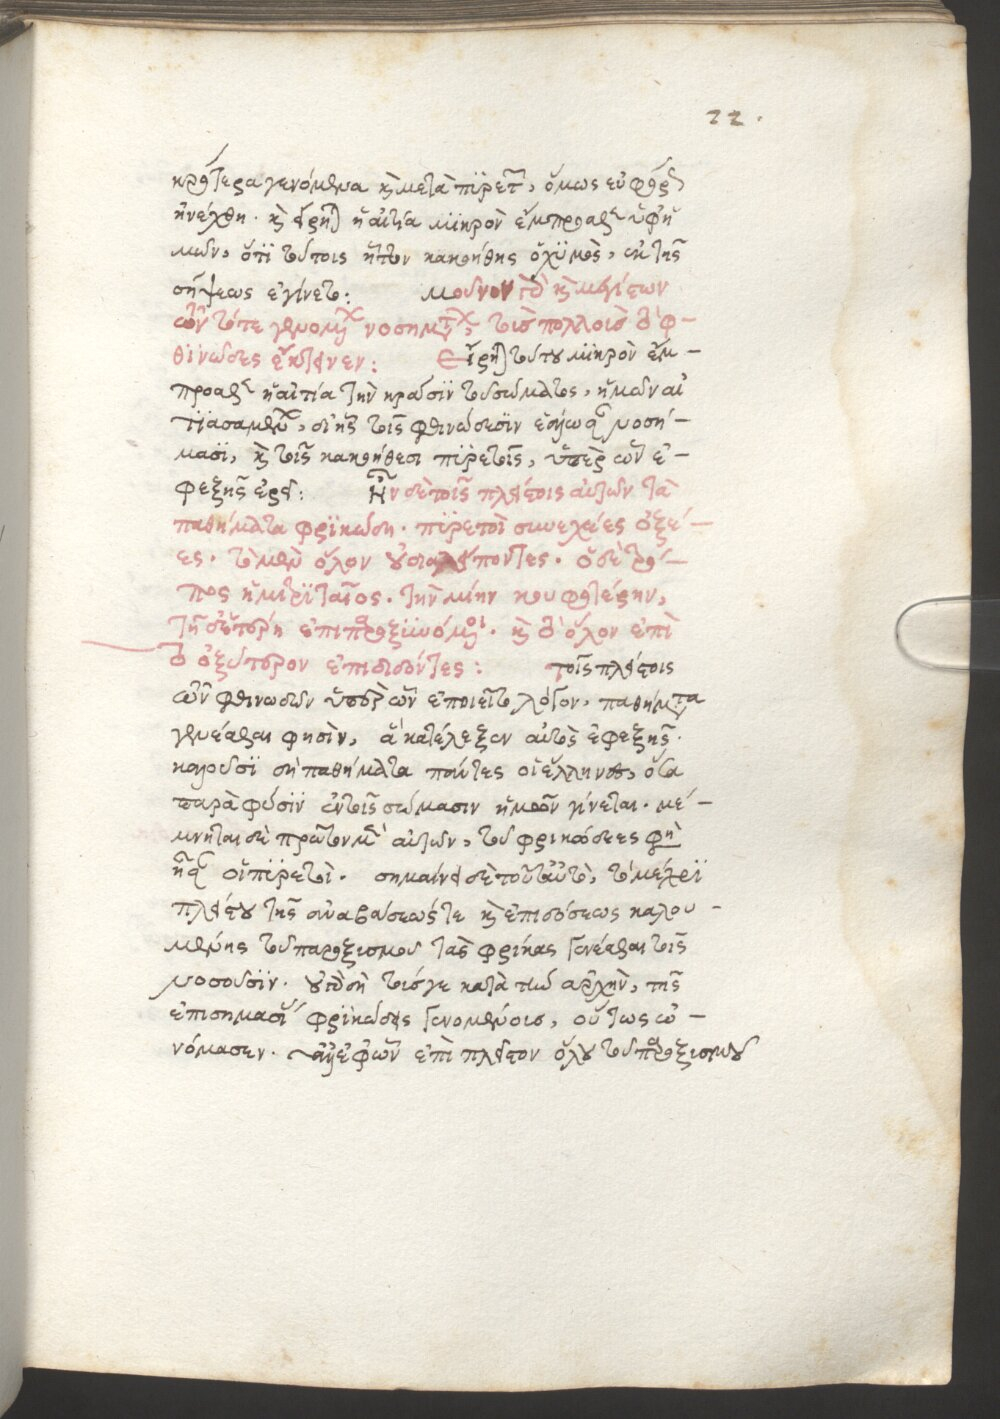 22.
κρότερα γενόμενα καὶ μετὰ πυρετοῦ, ὅμως εὐφόρως
ἠνέχθη. καὶ εἴρηται ἡ αἰτία μικρὸν ἔμπροσθεν ὑφ' ἡ
μῶν, ὅτι τούτοις ἧττον κακοήθης ὁ χυμὸς, ἐκ τῆς
σήψεως ἐγίνετο: Μοῦνον δὲ καὶ μέγιστον
τῶν τότε γενομένων νοσημάτων, τοὺς πολλοὺς τὸ φ-
θινῶδες ἔκτεινεν: Εἴρηται τούτου μικρὸν ἔμ-
προσθεν ἡ αἰτία τὴν κρᾶσιν τοῦ σώματος, ἡμῶν αἰ
τιασαμένων, ἐν τοῖς φθινώδεσιν νοσή-
μασι, καὶ τοῖς κακοήθεσι πυρετοῖς, ὑπὲρ ὧν ἐ-
φεξῆς ἐρεῖ: Ἦν δὲ τοῖς πλείστοις αὐτῶν τὰ
παθήματα φρικώδη. πυρετοὶ συνεχέες ὀξέ-
ες. τὸ μὲν ὅλον οὐ διαλείποντες. ὁ δὲ τρό-
πος ἡμιτριταῖος. τὴν μίην κουφοτέρην,
τῇ δ' ἑτέρῃ ἐπιπαροξυνόμενοι. καὶ τὸ ὅλον ἐπὶ
τὸ ὀξύτερον ἐπιδιδόντες: τοῖς πλείστοις
τῶν φθινωδῶν ὑπὲρ ὧν ἐποιεῖτο λόγον, παθήματα
γενέσθαι φησὶν, ἃ κατέλεξεν αὐτὸς ἐφεξῆς.
καλοῦσι δὴ παθήματα πάντες οἱ ἕλληνες, ὅσα
παρὰ φύσιν ἐν τοῖς σώμασιν ἡμῶν γίνεται. μέ-
μνηται δὲ πρῶτον μὲν αὐτῶν, τοῦ φρικώδεες φησὶ
ἦσαν οἱ πυρετοὶ. σημαίνει δὲ τοῦτ' αὐτὸ, τὸ μέχρι
πλείστου τῆς ἀναβάσεώς τε καὶ ἐπιδόσεως καλου-
μένης τοῦ παροξυσμοῦ τὰς φρίκας γενέσθαι τοῖς
νοσοῦσιν. οὐ δὴ τούς γε κατὰ τὴν ἀρχὴν, τῆς
ἐπισημασίας φρικώδεις γενομένους, οὕτως ὠ-
νόμασεν. ἀλλ' ἐφ' ὧν ἐπὶ πλεῖστον ὅλου τοῦ παροξυσμοῦ